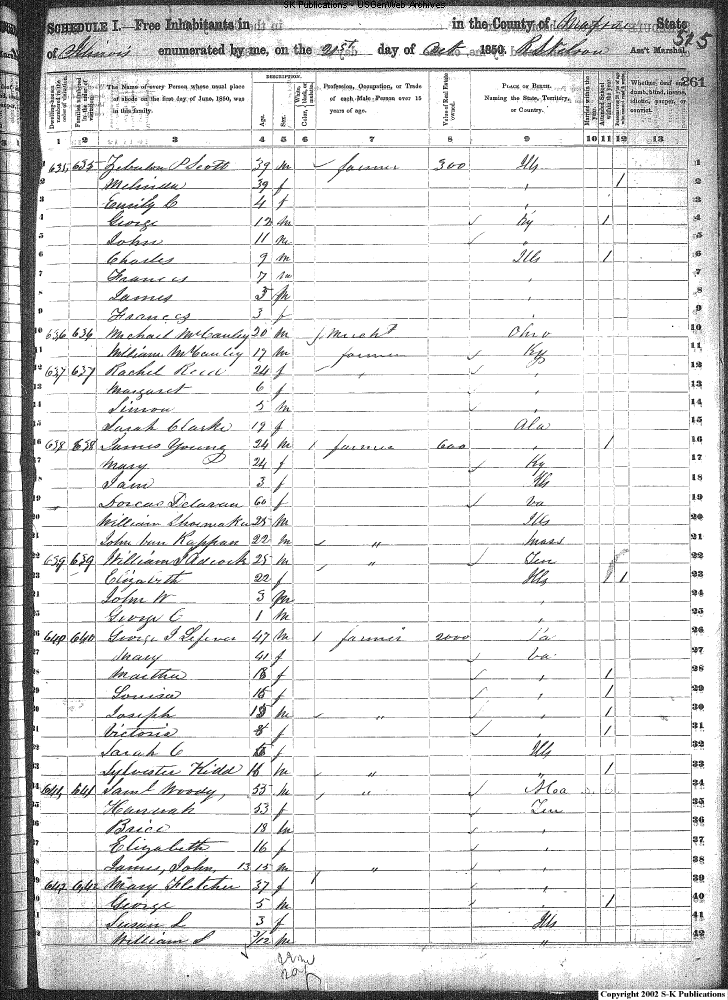 SK Publications - USGenWeb Archives
SCHEDULE I. Free Inhabitants in in the County of State
of Illinois enumerated by me, on the 21st day of Oct 1850. Ass't Marshal.
525
261
Dwelling-houses numbered in the order of visitation.
Families numbered in the order of visitation.
The Name of every Person whose usual place of abode on the first day of June, 1850, was in this family.
DESCRIPTION.
Age.
Sex.
Color, White, black, or mulatto.
Profession, Occupation, or Trade of each Male Person over 15 years of age.
Value of Real Estate owned.
PLACE OF BIRTH. Naming the State, Territory, or Country.
Married within the year.
Attended School within the year.
Whether deaf and dumb, blind, insane, idiotic, pauper, or convict.
1 2 3 4 5 6 7 8 9 10 11 12 13
1 635 635 Zebulon P Scott 39 m farmer 300 Ills
2 Melinda 39 f " 1
3 Emily C 4 f "
4 George 12 m Ky 1
5 John 11 m "
6 Charles 9 m Ills 1
7 Francis 7 m "
8 James 5 m "
9 Frances 3 f "
10 636 636 Michael McCauley 20 m Mercht Ohio
11 William McCauley 17 m farmer Ky
12 637 637 Rachel Reed 24 f "
13 Margaret 6 f "
14 Simon 5 m "
15 Sarah Clarke 19 f Ala
16 638 638 James Young 24 m 1 farmer 600 " 1
17 Mary 24 f Ky
18 3 f Ills
19 Dorcas Delavan 60 f Va
20 William Shoemaker 25 m Ills
21 John Van Kappan 22 m " Mass
22 639 639 William S Adcock 25 m " Ten
23 Elizabeth 22 f Ills 1 1
24 John W 3 m "
25 George C 1 m "
26 640 640 George I Lefever 47 m 1 farmer 2000 Pa
27 Mary 41 f Va
28 Martha f " 1
29 Louisa 15 f " 1
30 Joseph m " " 1
31 Victoria f " 1
32 Sarah C f Ills
33 Sylvester Kidd 16 m " " 1
34 641 641 Saml Woody, 55 m "
35 Hannah 53 f Ten
36 Brice 18 m "
37 Elizabeth 16 f "
38 James, John, 13 15 m " "
39 642 642 Mary Fletcher 37 f "
40 George 5 m " 1
41 Susan L 3 f Ills
42 William S 3/12 m "
22 m
20 f
Copyright 2002 S-K Publications